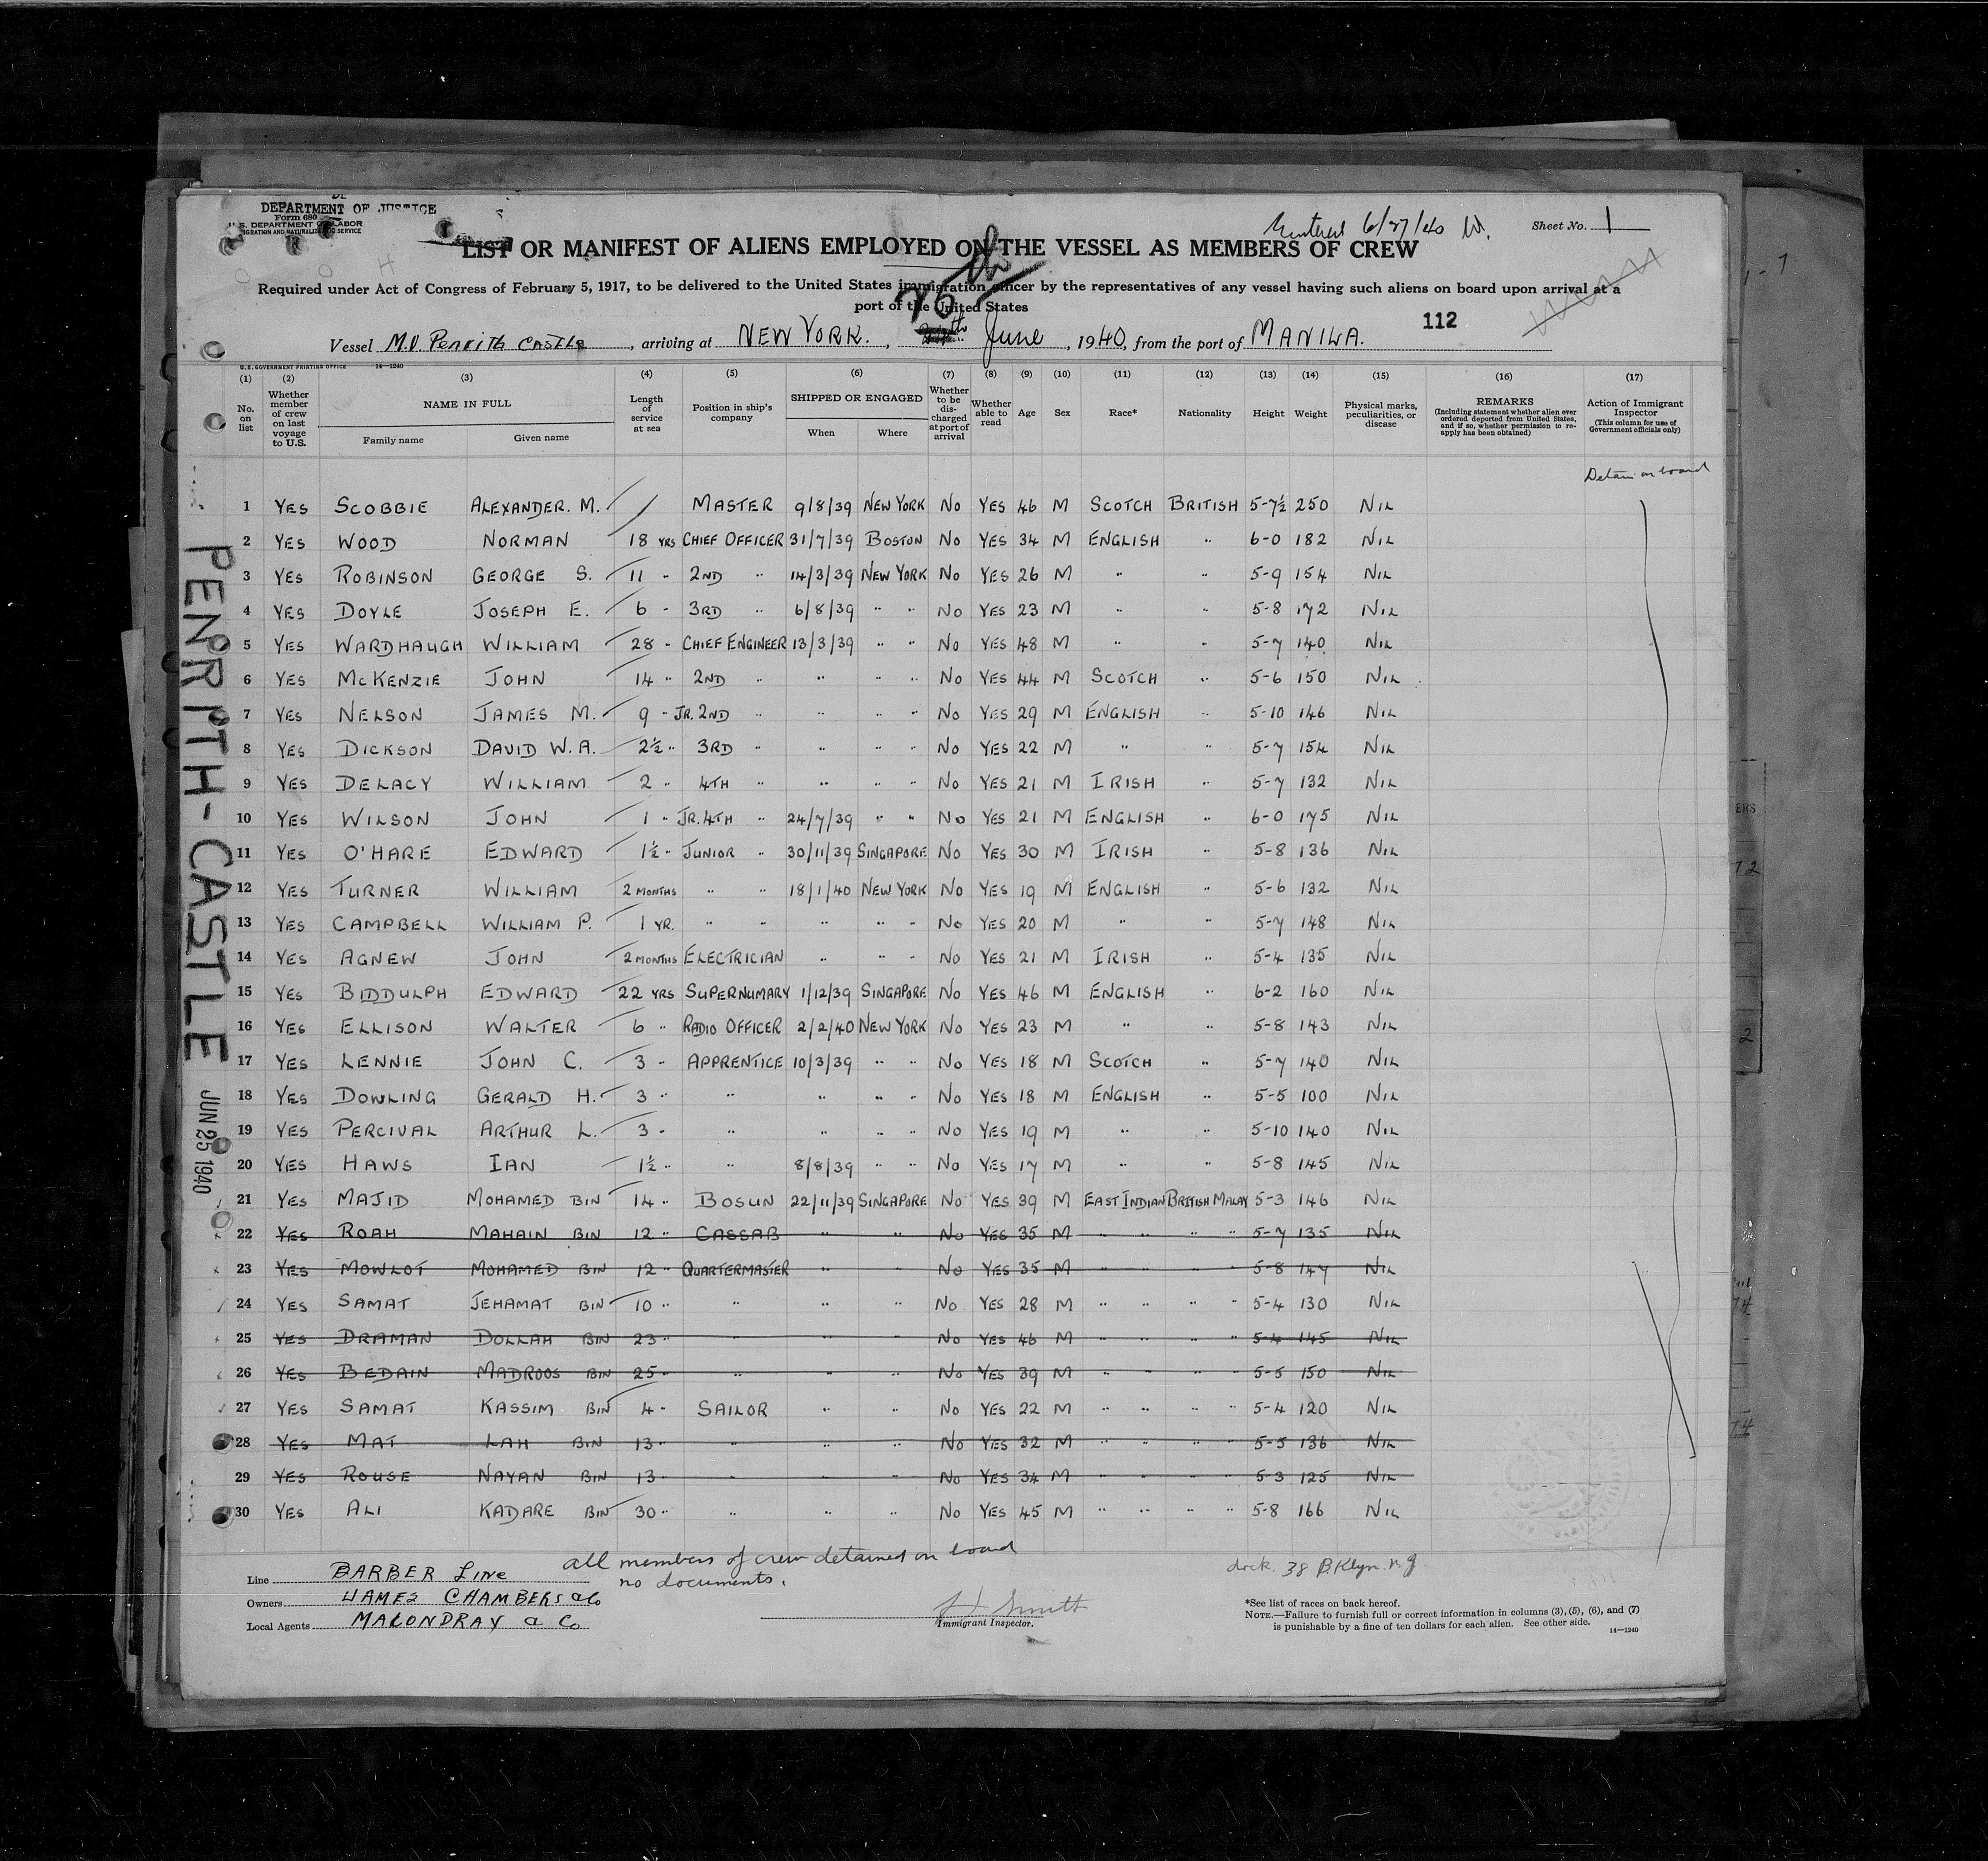 DEPARTMENT OF JUSTICE
Form 680
U. S. DEPARTMENT OF LABOR
IMMIGRATION AND NATURALIZATION SERVICE
Entered 6/27/40 W.
Sheet No. 1
LIST OR MANIFEST OF ALIENS EMPLOYED ON THE VESSEL AS MEMBERS OF CREW
Required under Act of Congress of February 5, 1917, to be delivered to the United States immigration officer by the representatives of any vessel having such aliens on board upon arrival at a
port of the United States
25th
112
Vessel M.V. Penrith Castle, arriving at NEW YORK., June, 1940, from the port of MANILA.
U. S. GOVERNMENT PRINTING OFFICE 14—1240
(1) (2) (3) (4) (5) (6) (7) (8) (9) (10) (11) (12) (13) (14) (15) (16) (17)
No. on list
Whether member of crew on last voyage to U.S.
NAME IN FULL
Family name Given name
Length of service at sea
Position in ship's company
SHIPPED OR ENGAGED
When Where
Whether to be discharged at port of arrival
Whether able to read
Age
Sex
Race*
Nationality
Height
Weight
Physical marks, peculiarities, or disease
REMARKS
(Including statement whether alien ever ordered deported from United States, and if so, whether permission to reapply has been obtained)
Action of Immigrant Inspector
(This column for use of Government officials only)
Detain on board
1 YES SCOBBIE ALEXANDER. M. MASTER 9/8/39 NEW YORK NO YES 46 M SCOTCH BRITISH 5-7½ 250 NIL
2 YES WOOD NORMAN 18 YRS CHIEF OFFICER 31/7/39 BOSTON NO YES 34 M ENGLISH " 6-0 182 NIL
3 YES ROBINSON GEORGE S. 11 " 2ND " 14/3/39 NEW YORK NO YES 26 M " " 5-9 154 NIL
4 YES DOYLE JOSEPH E. 6 " 3RD " 6/8/39 " " NO YES 23 M " " 5-8 172 NIL
5 YES WARDHAUGH WILLIAM 28 " CHIEF ENGINEER 13/3/39 " " NO YES 48 M " " 5-7 140 NIL
6 YES MCKENZIE JOHN 14 " 2ND " " " " NO YES 44 M SCOTCH " 5-6 150 NIL
7 YES NELSON JAMES M. 9 " JR. 2ND " " " " NO YES 29 M ENGLISH " 5-10 146 NIL
8 YES DICKSON DAVID W. A. 2½ " 3RD " " " " NO YES 22 M " " 5-7 154 NIL
9 YES DELACY WILLIAM 2 " 4TH " " " " NO YES 21 M IRISH " 5-7 132 NIL
10 YES WILSON JOHN 1 " JR. 4TH " 24/7/39 " " NO YES 21 M ENGLISH " 6-0 175 NIL
11 YES O'HARE EDWARD 1½ " JUNIOR " 30/11/39 SINGAPORE NO YES 30 M IRISH " 5-8 136 NIL
12 YES TURNER WILLIAM 2 MONTHS " " 18/1/40 NEW YORK NO YES 19 M ENGLISH " 5-6 132 NIL
13 YES CAMPBELL WILLIAM P. 1 YR. " " " " " NO YES 20 M " " 5-7 148 NIL
14 YES AGNEW JOHN 2 MONTHS ELECTRICIAN " " " NO YES 21 M IRISH " 5-4 135 NIL
15 YES BIDDULPH EDWARD 22 YRS SUPERNUMARY 1/12/39 SINGAPORE NO YES 46 M ENGLISH " 6-2 160 NIL
16 YES ELLISON WALTER 6 " RADIO OFFICER 2/2/40 NEW YORK NO YES 23 M " " 5-8 143 NIL
17 YES LENNIE JOHN C. 3 " APPRENTICE 10/3/39 " " NO YES 18 M SCOTCH " 5-7 140 NIL
18 YES DOWLING GERALD H. 3 " " " " " NO YES 18 M ENGLISH " 5-5 100 NIL
19 YES PERCIVAL ARTHUR L. 3 " " " " " NO YES 19 M " " 5-10 140 NIL
20 YES HAWS IAN 1½ " " 8/8/39 " " NO YES 17 M " " 5-8 145 NIL
21 YES MAJID MOHAMED BIN 14 " BOSUN 22/11/39 SINGAPORE NO YES 39 M EAST INDIAN BRITISH MALAY 5-3 146 NIL
22 YES ROAH MAHAIN BIN 12 " CASSAB " " NO YES 35 M " " " " 5-7 135 NIL
23 YES MOWLOT MOHAMED BIN 12 " QUARTERMASTER " " NO YES 35 M " " " " 5-8 147 NIL
24 YES SAMAT JEHAMAT BIN 10 " " " " NO YES 28 M " " " " 5-4 130 NIL
25 YES DRAMAN DOLLAH BIN 23 " " " " NO YES 46 M " " " " 5-4 145 NIL
26 YES BEDAIN MADROOS BIN 25 " " " " NO YES 39 M " " " " 5-5 150 NIL
27 YES SAMAT KASSIM BIN 4 " SAILOR " " NO YES 22 M " " " " 5-4 120 NIL
28 YES MAT LAH BIN 13 " " " " NO YES 32 M " " " " 5-5 136 NIL
29 YES ROUSE NAYAN BIN 13 " " " " NO YES 34 M " " " " 5-3 125 NIL
30 YES ALI KADARE BIN 30 " " " " NO YES 45 M " " " " 5-8 166 NIL
PENRITH-CASTLE
JUN 25 1940
all members of crew detained on board
no documents.
dock. 38 BKlyn. n.y.
Line BARBER LINE
Owners JAMES CHAMBERS & Co
Local Agents MALONDRAY & Co
Smith
Immigrant Inspector.
*See list of races on back hereof.
NOTE.—Failure to furnish full or correct information in columns (3), (5), (6), and (7)
is punishable by a fine of ten dollars for each alien. See other side.
14—1240